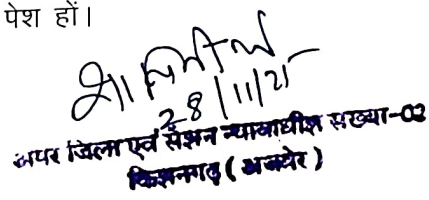 पेश हों।
28/11/25
अपर जिला एवं सैशन न्यायाधीश संख्या-02
किशनगढ़ (अजमेर)